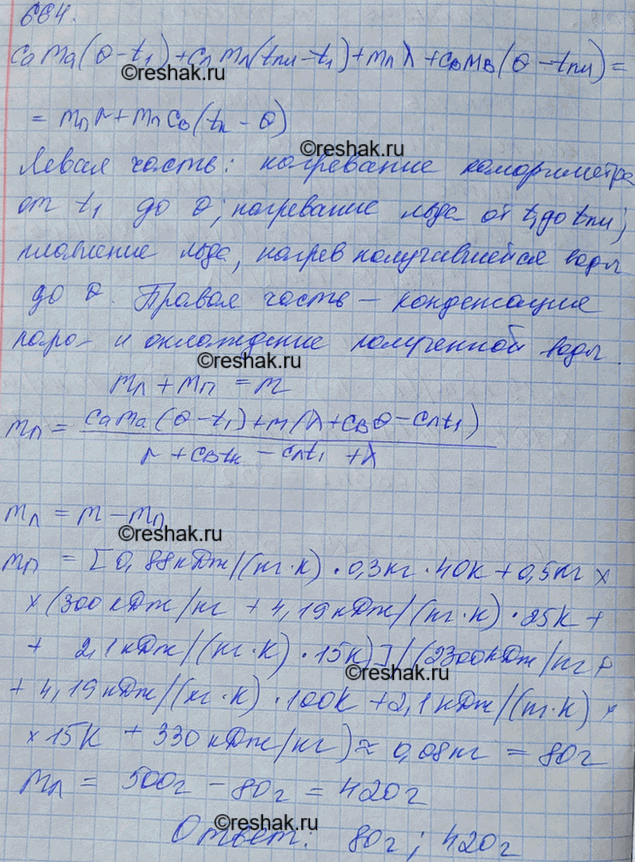 664.
cаmа(θ-t₁)+cлmл(tпл-t₁)+mлλ+cвmв(θ-tпл)=
©reshak.ru
= mпr+mпcв(tк-θ)
©reshak.ru
Левая часть: нагревание калориметра
от t₁ до θ; нагревание льда от t₁ до tпл;
плавление льда, нагрев получившейся воды
до θ. Правая часть – конденсация
пара и охлаждение полученной воды.
©reshak.ru
mл + mп = m
mп = cаmа(θ-t₁)+m(λ+cвθ-cлt₁)
r+cвtк-cлt₁ +λ
mл = m-mп
©reshak.ru
mп = [0,88кДж/(кг·к)·0,3кг·40К+0,5кг×
×(300кДж/кг + 4,19кДж/(кг·к)·25К+
+ 2,1кДж/(кг·к)·15К)]/(2300кДж/кг+
©reshak.ru
+4,19кДж/(кг·к)·100К+2,1кДж/(кг·к)×
×15К + 330кДж/кг)≈0,08кг = 80г
mл = 500г - 80г = 420г
©reshak.ru
Ответ: 80г; 420г